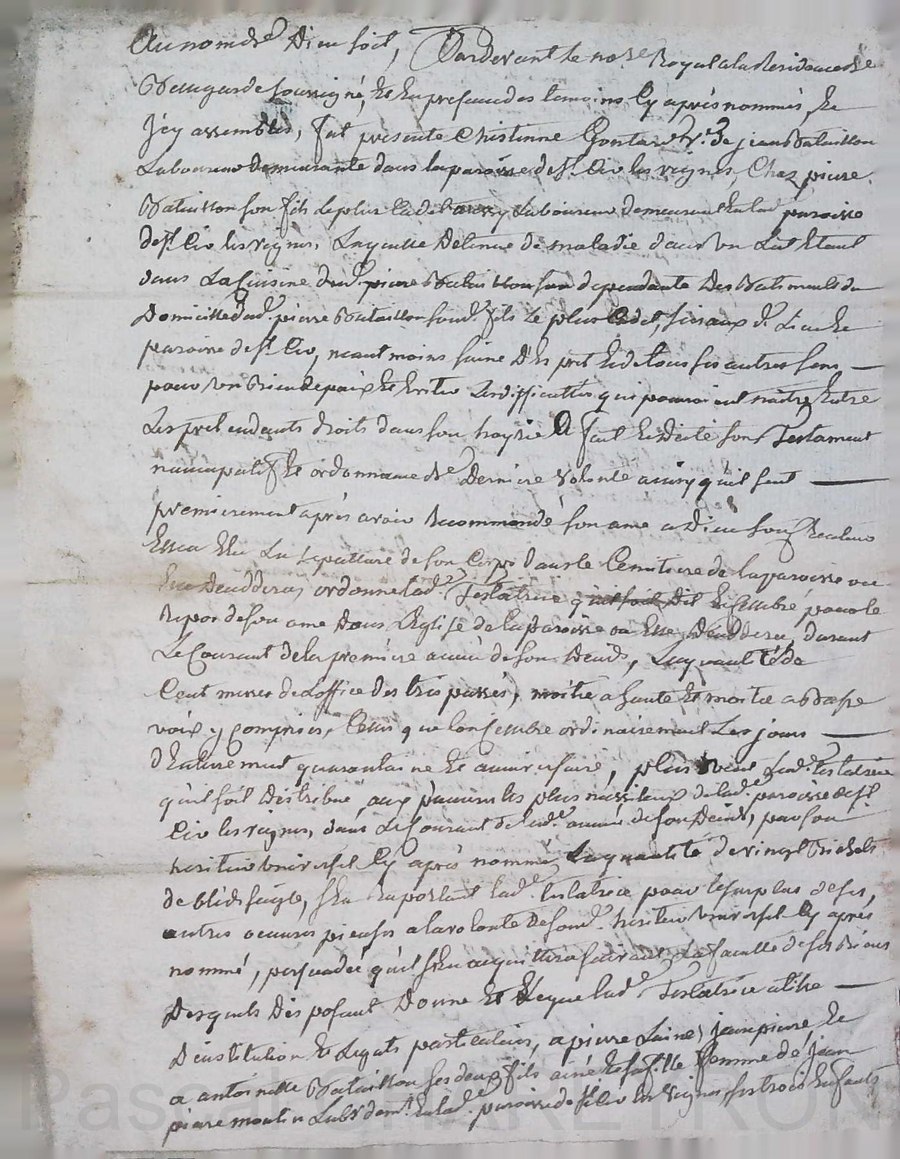 Au nom de Dieu soit, Pardevant le no.re Royal a la Residence de
soussigné, et en presance des temoins cy après nommés, et
icy assemblés, fut presente Chistinne Gontard v.e de jean Bataillon
Laboureur demeurante dans la paroisse de st Cir les vignes, Chez pierre
Bataillon son fils le plus Cadet aussy Laboureur demeurant en lad. paroisse
de st Cir les vignes, Laquelle detenue de maladie dans un Lit Etant
dans La Cuisine dud. pierre Bataillon son dependante Des Batiments du
Domicille dud. pierre Bataillon sond. fils le plus Cadet, d. Lieu et
paroisse de st Cir, neant moins saine D'Esprit et de tous ses autres sens
pour un Bien de paix et Eviter les difficultes qui pouroient naitre Entre
Les pretendants droits dans son hoyrie A fait et dicté son Testament
nuncupatif et ordonnance de Derniere volonté ainsy qu'il suit
premierement après avoir Recommandé son ame a Dieu son Createur
Elle a Elu La sepulture de son Corps dans le Cemitiere de la paroisse ou
Elle Deceddera, ordonne lad.e Testatrice qu'il soit Dit et Cellebré pour le
Repos de son ame Dans l'Eglise de la paroisse ou Elle Deceddera, durant
Le Courant de la première année de son Decés, La quantité de
Cent messes de L'office des trepassés, moitie a haute et moitie a Basse
voix y compris Celles que lon Cellebre ordinairement Les jours
d'Enterrement quarantaine et anniversaire, plus veut lad.e testatrice
qu'il soit Distribué aux pauvres les plus necessiteux de lad.e paroisse de st
Cir les vignes, dans Le Courant de lad.e année de son Decés, par son
heritier universel Cy après nommé, La quantité de vingt Bichets
de bled seigle, s'En raportant lad.e testatrice pour le surplus de ses
autres oeuvres pieuses a la volonté de sond. heritier universel Cy après
nommé, persuadée qu'il s'En acquittera suivant La faculté de ses Biens
Desquels Disposant Donne et Legue lad.e Testatrice a titre
D'institution et Legats particuliers, a pierre L'ainé, jean pierre, et
a antoinette Bataillon ses deux fils ainé et sa fille femme de jean
pierre moulin Lab.r dem.t en lad.e paroisse de st Cir les vignes ses trois Enfants
Pascal CHARETRON